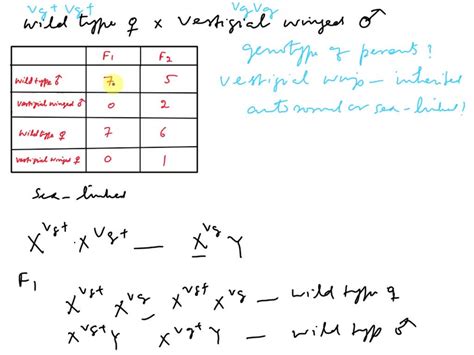 vg+ vg+ vgvg
wild type ♀ x vestigial winged ♂
genotype of parents?
F1 F2
wild type ♂ 7 5
vestigial winged ♂ 0 2
wild type ♀ 7 6
vestigial winged ♀ 0 1
vestigial wings - inherited
autosomal or sex-linked?
sex-linked
X^vg+ . X^vg+ — X^vg Y
F1
X^vg+ X^vg - X^vg+ X^vg — wild type ♀
X^vg+ Y X^vg+ Y — wild type ♂